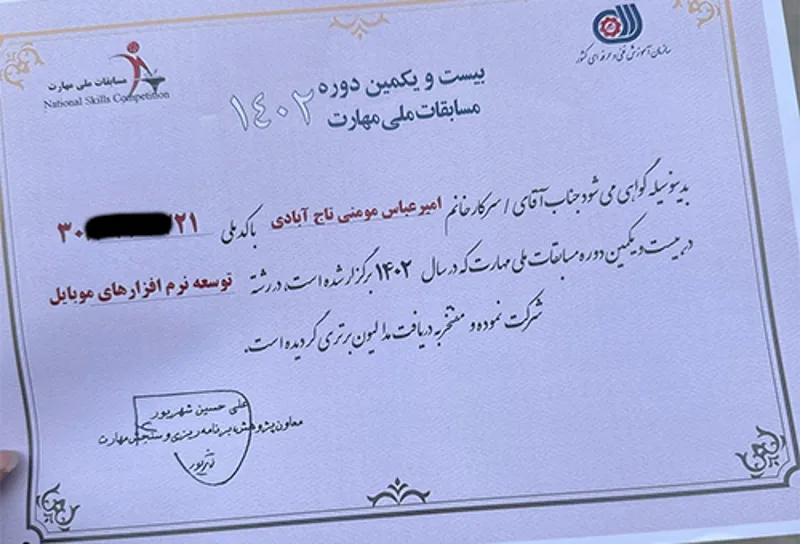 سازمان آموزش فنی و حرفه ای کشور
مسابقات ملی مهارت
National Skills Competition
بیست و یکمین دوره
مسابقات ملی مهارت
۱۴۰۲
بدینوسیله گواهی می شود جناب آقای / سرکار خانم امیرعباس مومنی تاج آبادی با کد ملی ۳۰ ۲۱
در بیست و یکمین دوره مسابقات ملی مهارت که در سال ۱۴۰۲ برگزار شده است، در رشته توسعه نرم افزارهای موبایل
شرکت نموده و مفتخر به دریافت مدالیون برتری گردیده است.
علی حسین شهریور
معاون پژوهش، برنامه ریزی و سنجش مهارت